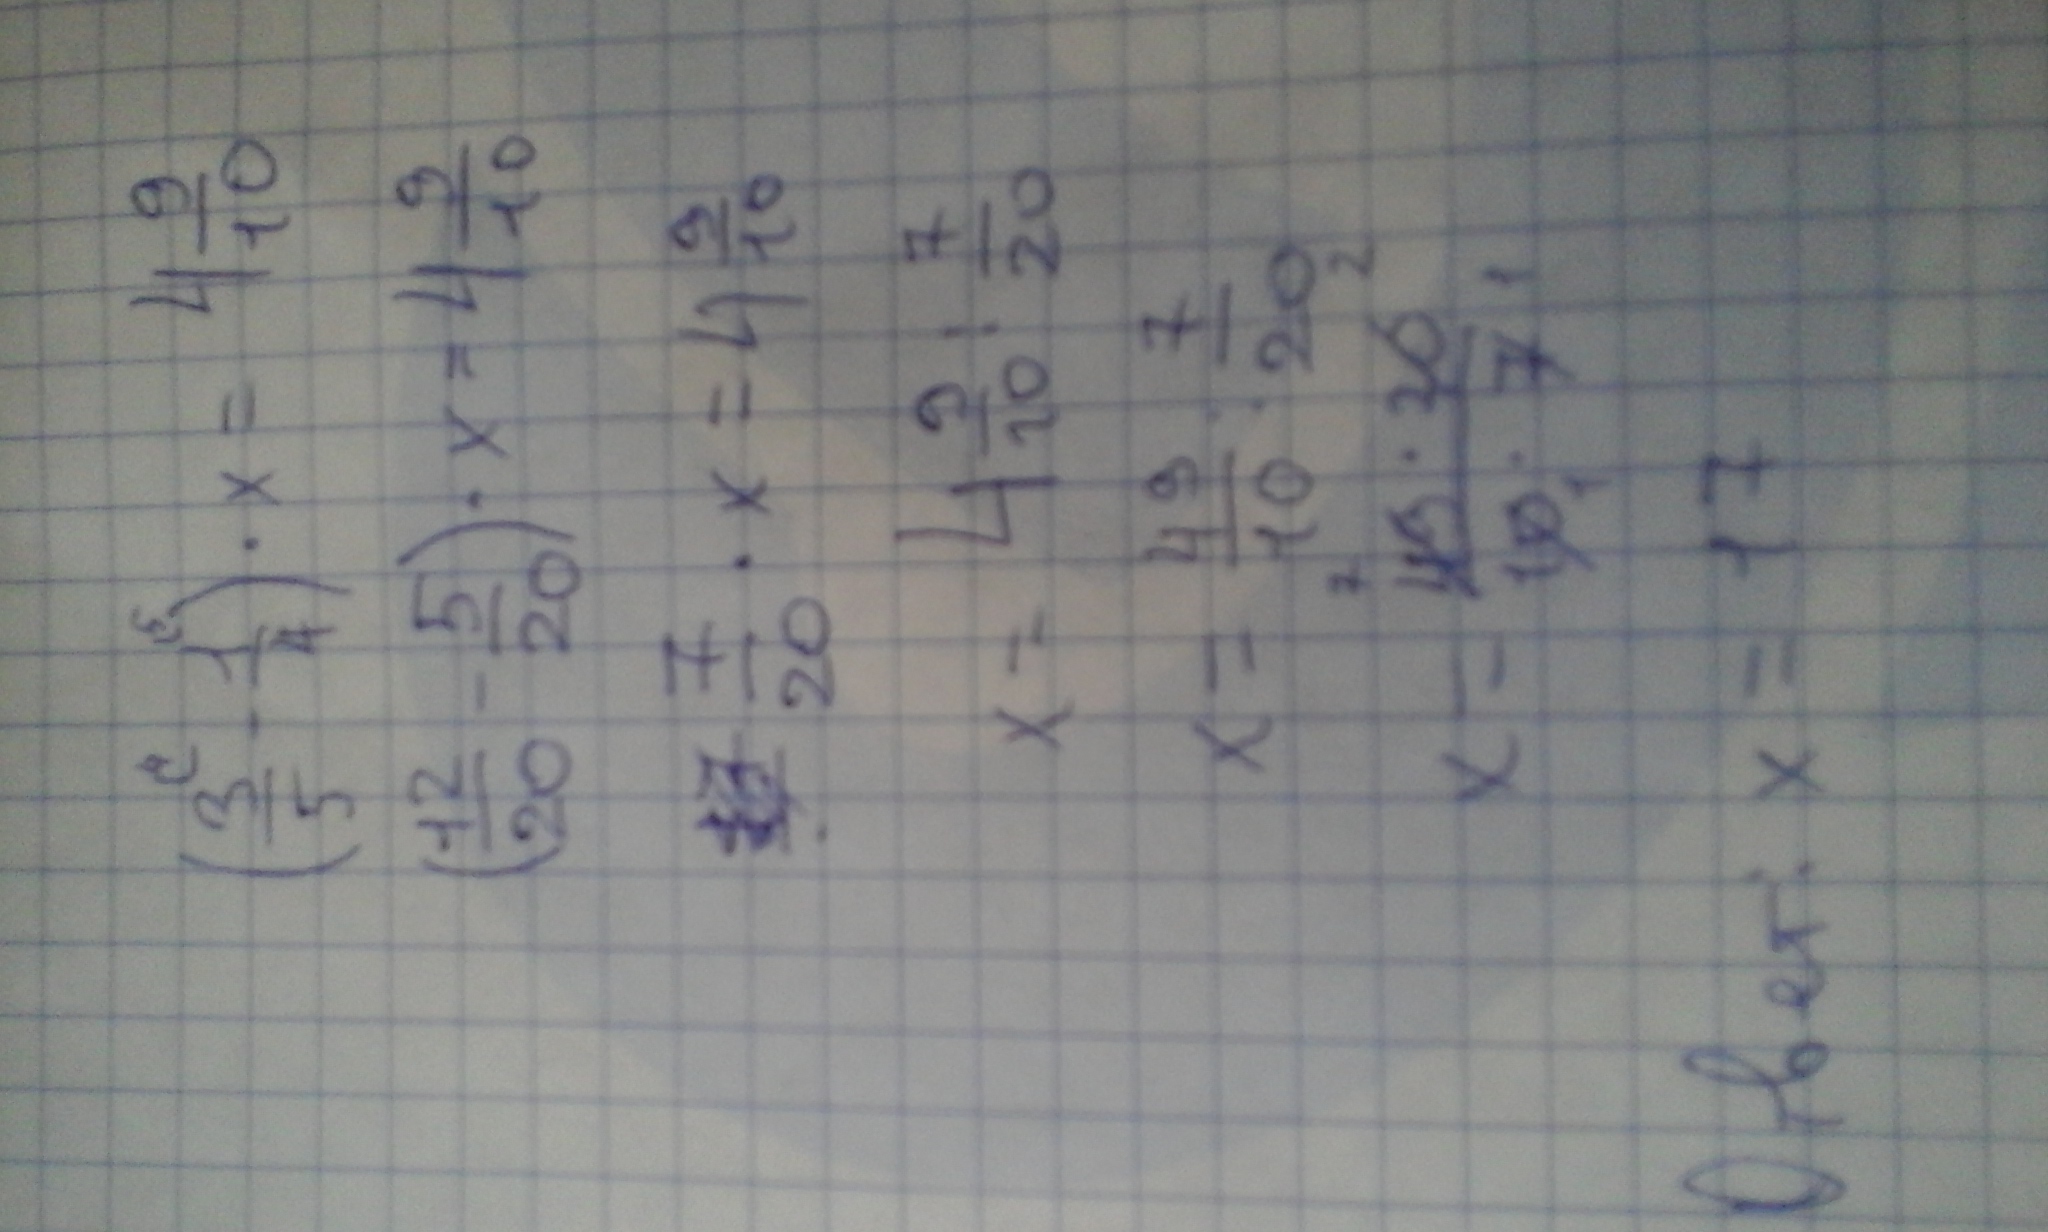 (3/5 - 1/4) · x = 4 9/10
(12/20 - 5/20) · x = 4 9/10
7/20 · x = 4 9/10
x = 4 9/10 : 7/20
x = 49/10 : 7/20
x = 49 · 20 / 10 · 7
Ответ: x = 17